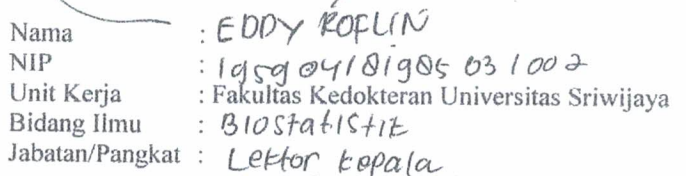 Nama : EDDY ROFLIN
NIP : 19590418 1985 03 1 002
Unit Kerja : Fakultas Kedokteran Universitas Sriwijaya
Bidang Ilmu : BIOStatistik
Jabatan/Pangkat : Lektor kepala